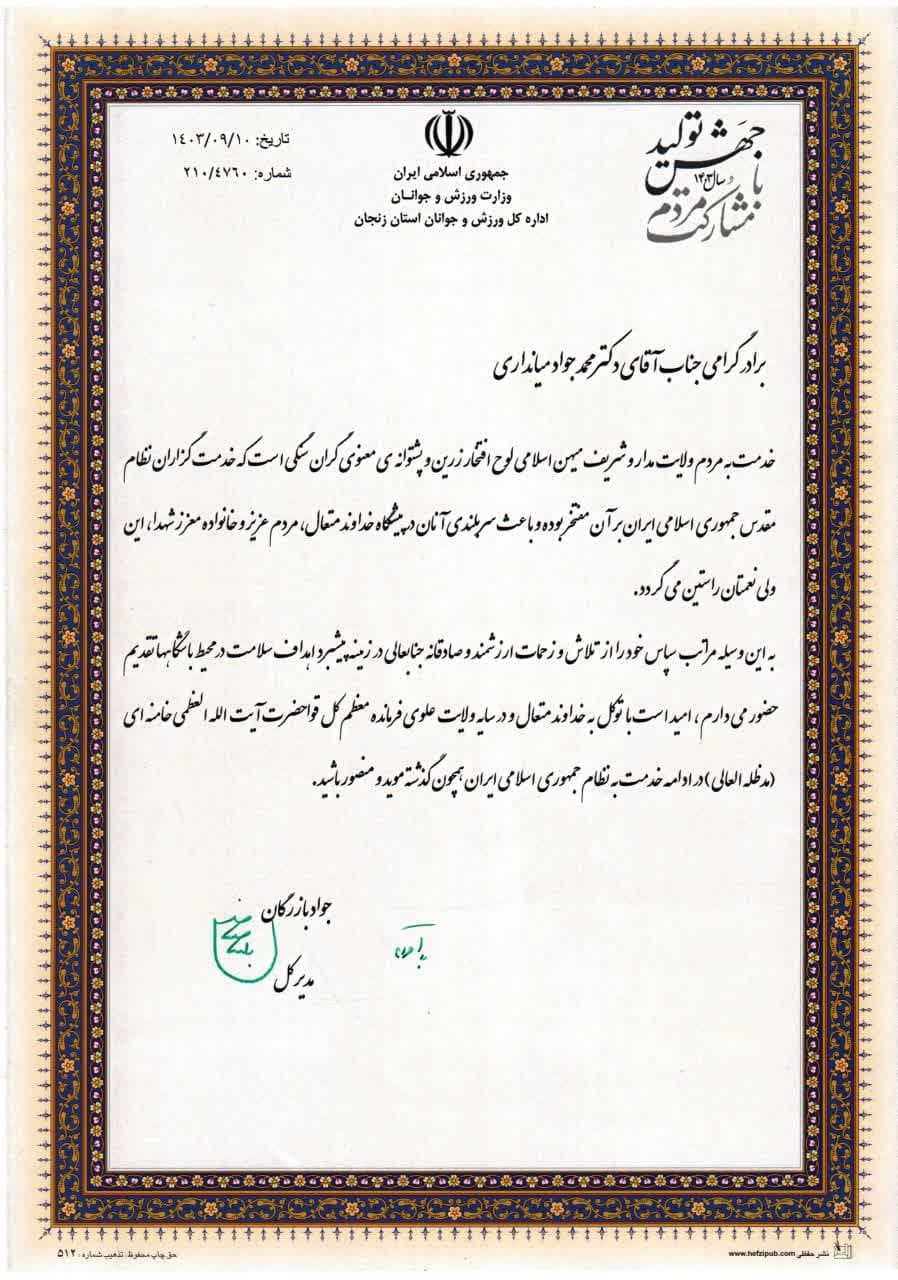 جهش تولید
با مشارکت مردم
سال ۱۴۰۳
جمهوری اسلامی ایران
وزارت ورزش و جوانان
اداره کل ورزش و جوانان استان زنجان
تاریخ: ۱۴۰۳/۰۹/۱۰
شماره: ۲۱۰/۴۷۶۰
برادر گرامی جناب آقای دکتر محمد جواد میانداری
خدمت به مردم ولایت مدار و شریف میهن اسلامی لوح افتخار زرین و پشتوانه ی معنوی گران سنگی است که خدمت گزاران نظام
مقدس جمهوری اسلامی ایران بر آن مفتخر بوده و باعث سربلندی آنان در پیشگاه خداوند متعال، مردم عزیز و خانواده معزز شهدا، این
ولی نعمتان راستین می گردد.
به این وسیله مراتب سپاس خود را از تلاش و زحمات ارزشمند و صادقانه جنابعالی در زمینه پیشبرد اهداف سلامت در محیط باشگاهها تقدیم
حضور می دارم ، امید است با توکل به خداوند متعال و در سایه ولایت علوی فرمانده معظم کل قوا حضرت آیت الله العظمی خامنه ای
(مدظله العالی) در ادامه خدمت به نظام جمهوری اسلامی ایران همچون گذشته موید و منصور باشید.
جواد بازرگان
مدیر کل
نشر حفظی www.hefzipub.com
حق چاپ محفوظ. تذهیب شماره: ۵۱۲